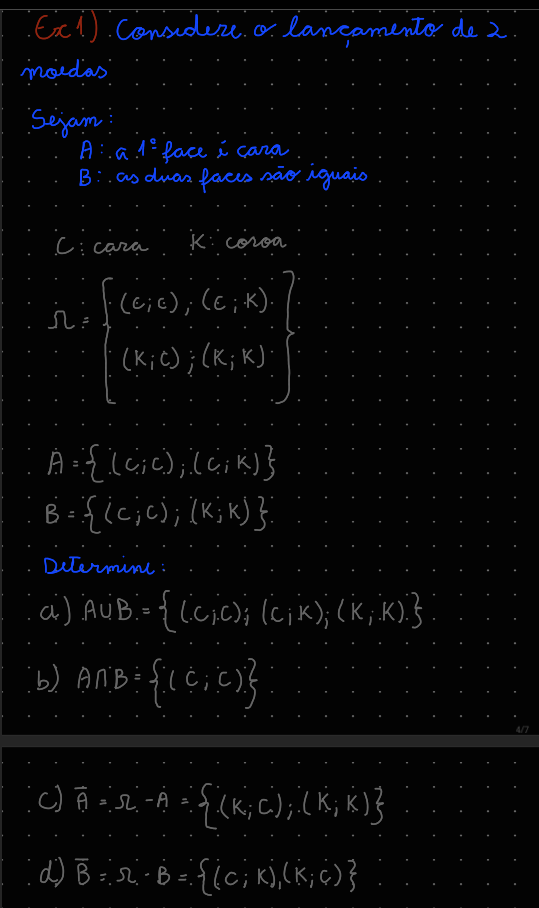 Ex 1) Considere o lançamento de 2
moedas
Sejam:
A: a 1º face é cara
B: as duas faces são iguais
C: cara K: coroa
Ω = { (C;C); (C;K)
(K;C); (K;K) }
A = { (C;C); (C;K)}
B = { (C;C); (K;K)}
Determine:
a) A∪B = { (C;C); (C;K); (K;K)}
b) A∩B = { (C;C)}
4/7
c) Ā = Ω - A = { (K;C); (K;K)}
d) B̄ = Ω - B = { (C;K), (K;C)}